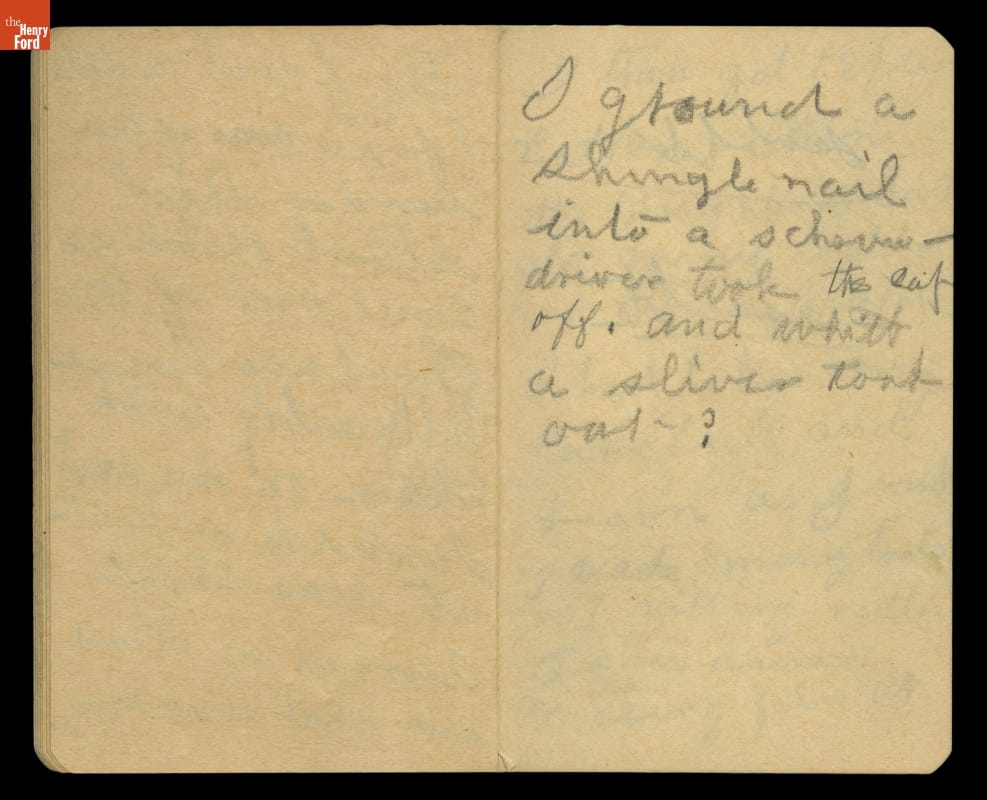 the
Henry
Ford
I ground a
shingle nail
into a schrew-
driver took the cap
off. and whitt
a sliver took
out ?